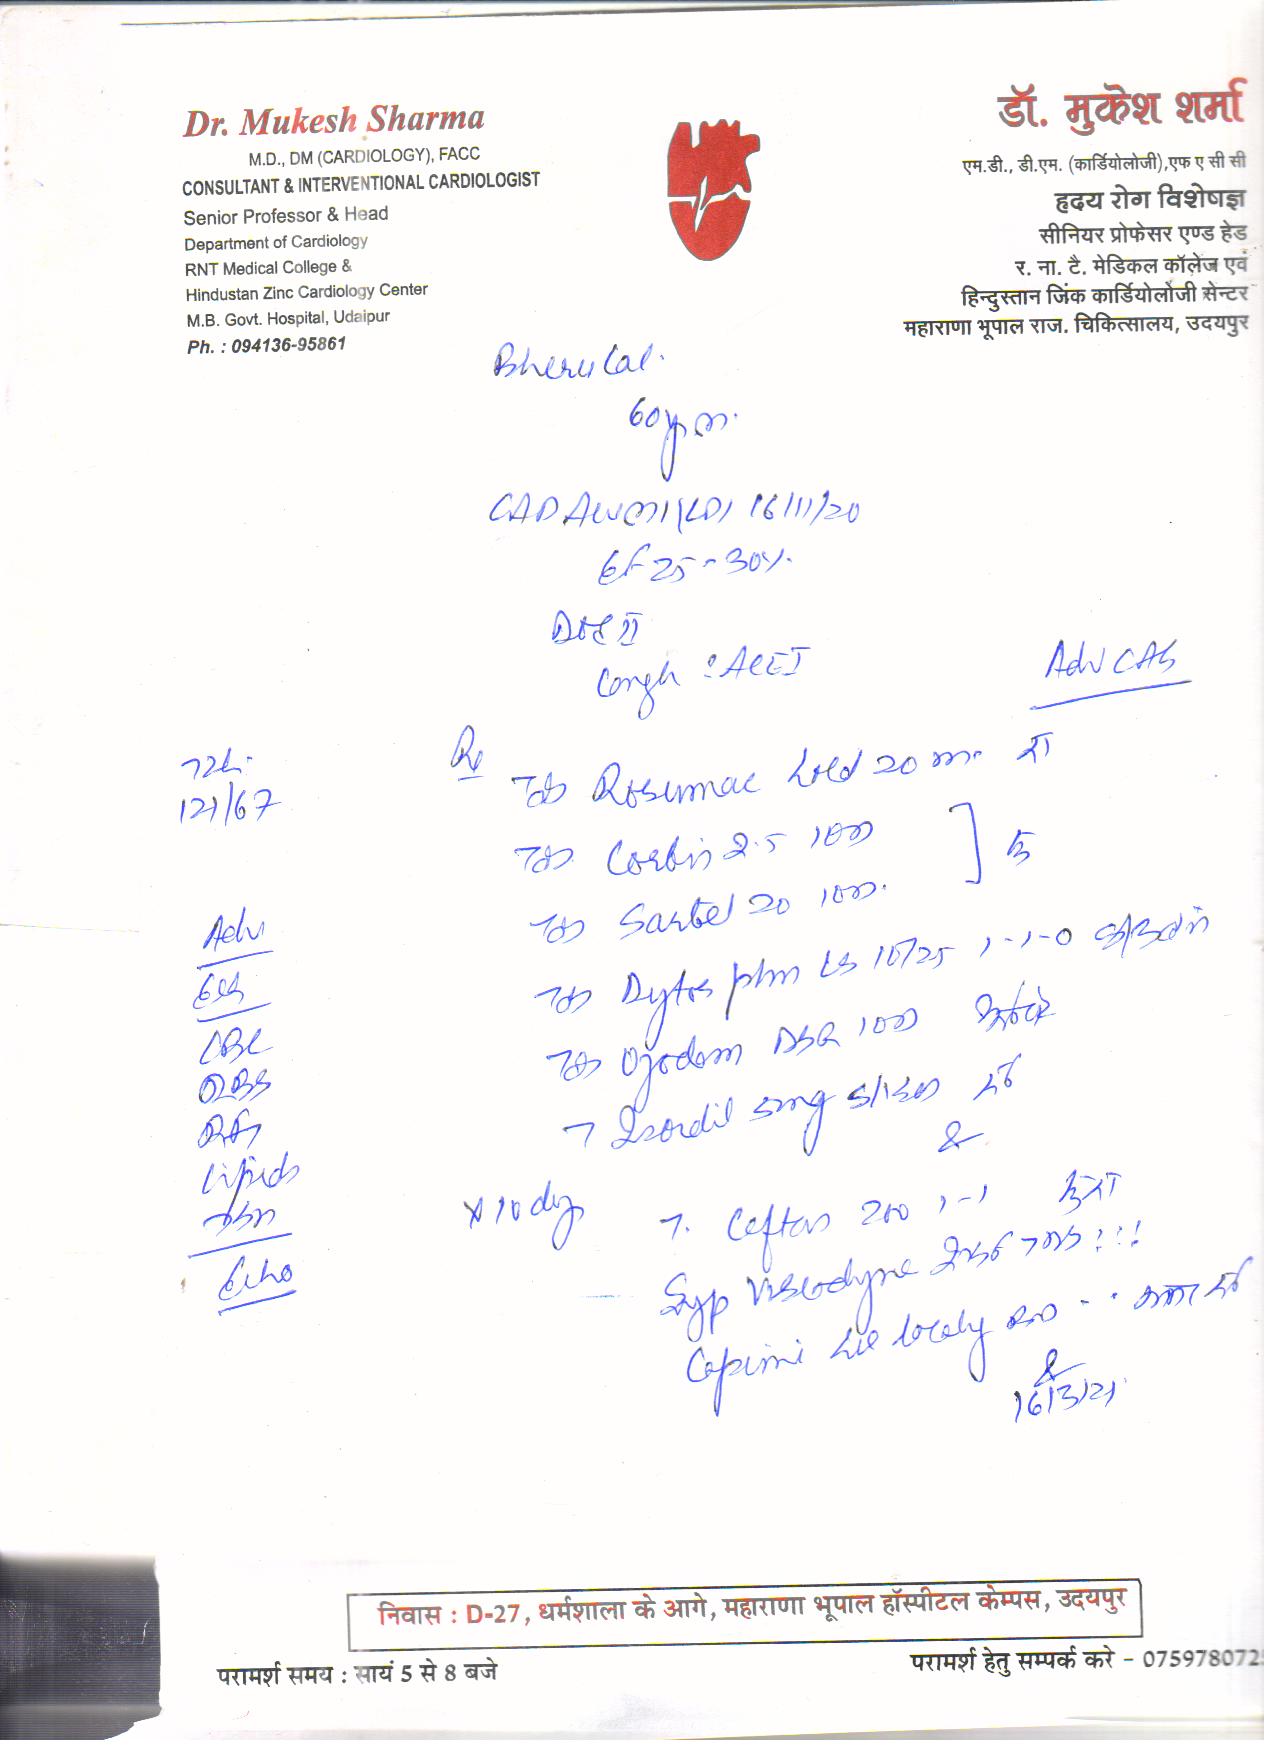 Dr. Mukesh Sharma
M.D., DM (CARDIOLOGY), FACC
CONSULTANT & INTERVENTIONAL CARDIOLOGIST
Senior Professor & Head
Department of Cardiology
RNT Medical College &
Hindustan Zinc Cardiology Center
M.B. Govt. Hospital, Udaipur
Ph. : 094136-95861
डॉ. मुकेश शर्मा
एम.डी., डी.एम. (कार्डियोलोजी),एफ ए सी सी
हृदय रोग विशेषज्ञ
सीनियर प्रोफेसर एण्ड हेड
र. ना. टै. मेडिकल कॉलेज एवं
हिन्दुस्तान जिंक कार्डियोलोजी सेन्टर
महाराणा भूपाल राज. चिकित्सालय, उदयपुर
Bherulal.
60y m.
CAD AWMI (LD) 16/11/20
EF 25-30%.
DOE II
Cough ? ACEI
Adv CAG
72/-
121/67
Rx
Rosumac Gold 20
Corbis 2.5
Sartel 20
Dytor plus LS 10/25 1-1-0
DSR
Isordil 5mg S/L
x 10 day
T. Ceftas 200 1-1
Syp Viscodyne
locally
16/3/21
Adv
ECG
CBC
RBS
RFT
Lipids
TSH
Echo
निवास : D-27, धर्मशाला के आगे, महाराणा भूपाल हॉस्पीटल केम्पस, उदयपुर
परामर्श समय : सायं 5 से 8 बजे
परामर्श हेतु सम्पर्क करे - 0759780725